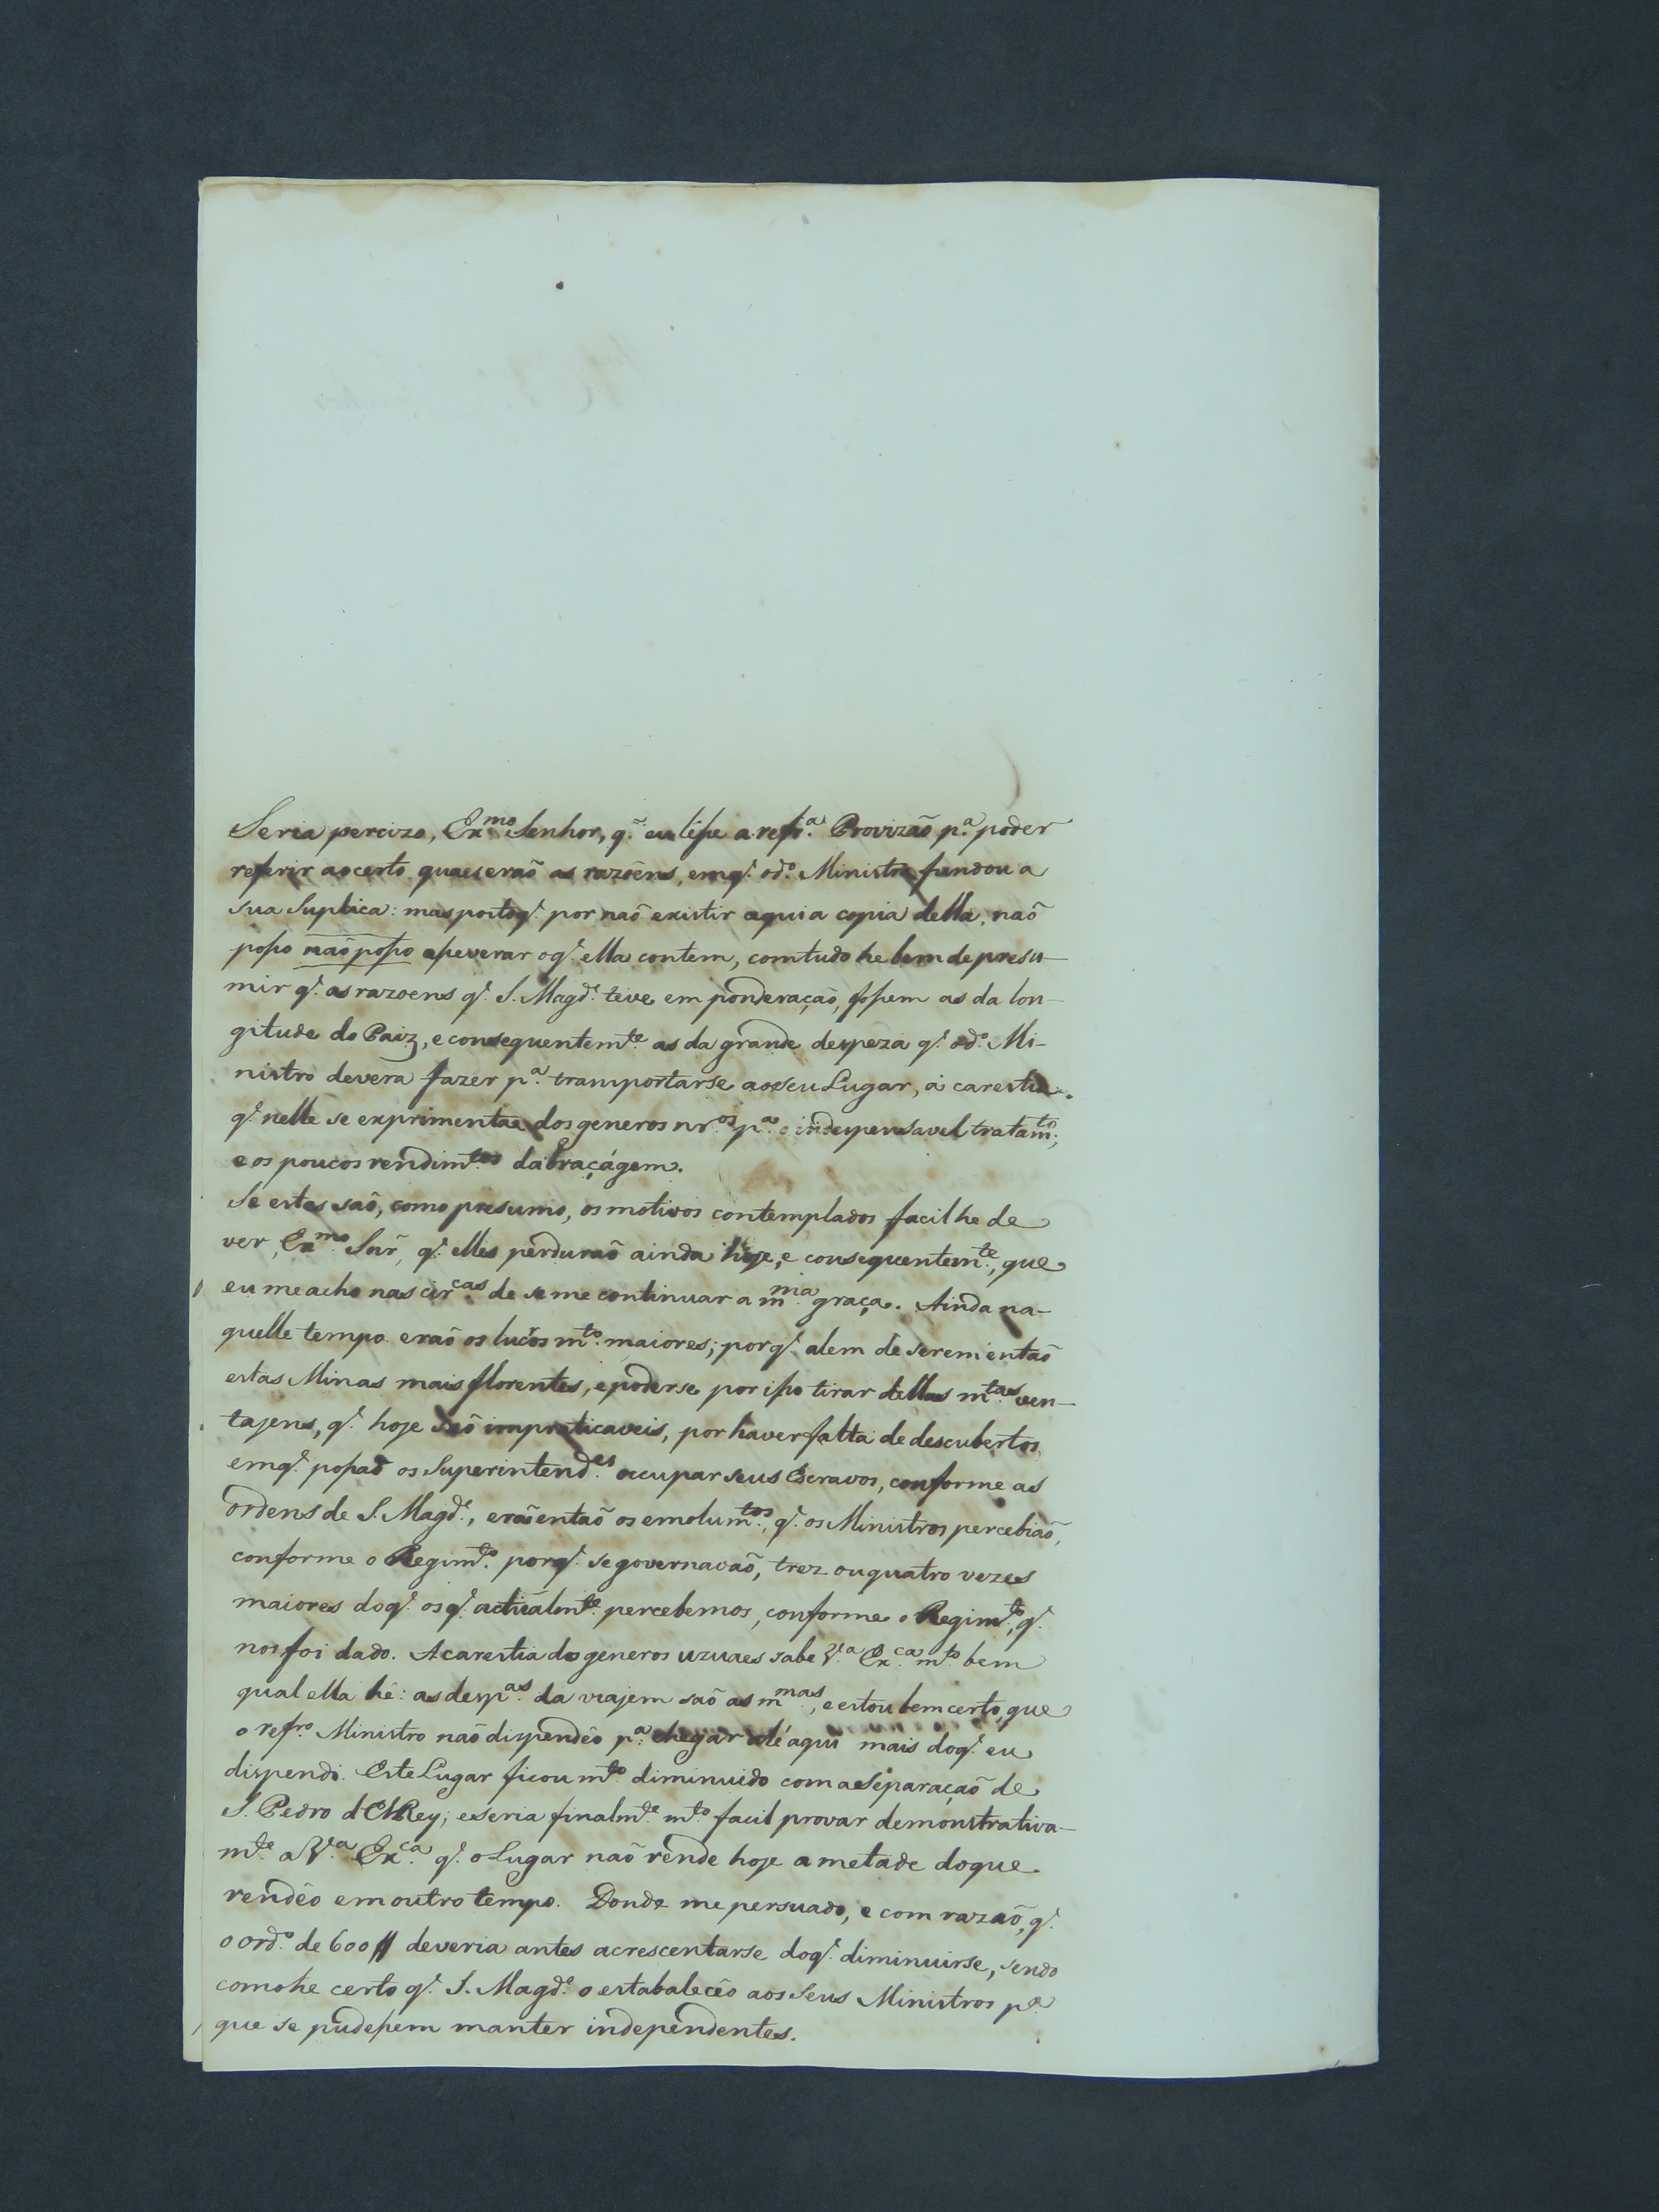 Seria percizo, Ex.mo Senhor, q.' eu lêsse a refr.a Provizaõ p.a poder
referir ao certo quaes eraõ as razoẽns, em q.' o d.o Ministro fundou a
sua Suplica: mas posto q.' por naõ existir aqui a copia della, naõ
posso naõ posso asseverar o q.' ella contem, com tudo he bem de presu-
mir q.' as razoens q.' S. Magd.e teve em ponderaçaõ, fossem as da lon-
gitude do Paiz, e consequentem.te as da grande despeza q.' o d.o Mi-
nistro devera fazer p.a transportarse ao seu Lugar, a carestia
q.' nelle se exprimentaa dos generos nr.os p.a o indespensavel tratam.to;
e os poucos rendim.tos da braçágem.
Se estes saõ, como presumo, os motivos contemplados facil he de
ver, Ex.mo Snr̃, q.' elles perduraõ ainda hoje, e consequentem.te, que
eu me acho nas cir.cas de se me continuar a m.ma graça. Ainda na-
quelle tempo eraõ os lucros m.to maiores; porq.' alem de serem entaõ
estas Minas mais florentes, e poderse por isso tirar dellas m.tas ven-
tajens, q.' hoje saõ impraticaveis, por haver falta de descubertos,
em q.' possaõ os Superintend.es occupar seus Escravos, conforme as
ordens de S. Magd.e, eraõ entaõ os emolum.tos, q.' os Ministros percebiaõ,
conforme o Regim.to porq.' se governavaõ, trez ou quatro vezes
maiores do q.' os q.' actualm.te percebemos, conforme o Regim.to, q.'
nos foi dado. A carestia do generos uzuaes sabe V.a Ex.ca m.to bem
qual ella hê: as desp.as da viajem saõ as m.mas, e estou bem certo, que
o refr.o Ministro naõ dispendêo p.a chegar até aqui mais do q.' eu
dispendi. Este Lugar ficou m.to diminuido com a Separaçaõ de
S. Pedro d'ElRey; e seria finalm.te m.to facil provar demonstrativa-
m.te a V.a Ex.ca q.' o Lugar naõ rende hoje a metade do que
rendêo em outro tempo. Donde me persuado, e com razaõ, q.'
o ord.o de 600// deveria antes acrescentarse do q.' diminuirse, sendo
como he certo q.' S. Magd.e o estabalecêo aos Seus Ministros p.a
que se pudessem manter independentes.